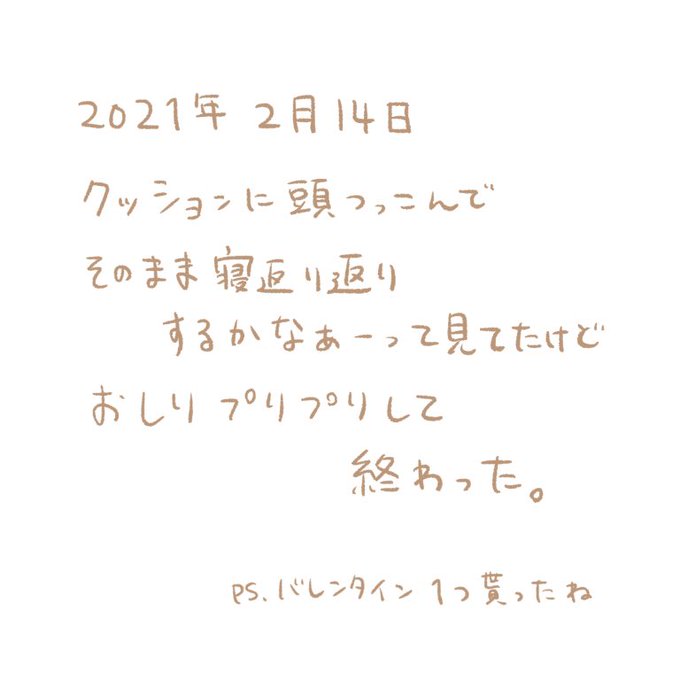 2021年 2月14日
クッションに頭つっこんで
そのまま寝返り返り
するかなぁーって見てたけど
おしりプリプリして
終わった。
PS.バレンタイン1つ貰ったね